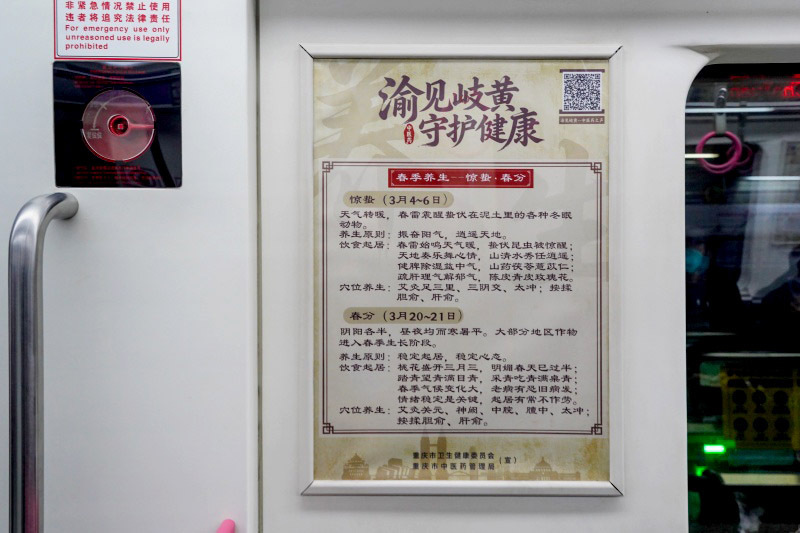 非紧急情况禁止使用
违者将追究法律责任
For emergency use only
unreasoned use is legally
prohibited
渝见岐黄
中医药
守护健康
春季养生--惊蛰·春分
惊蛰（3月4~6日）
天气转暖，春雷震醒蛰伏在泥土里的各种冬眠
动物。
养生原则：振奋阳气，逍遥天地。
饮食起居：春雷始鸣天气暖，蛰伏昆虫被惊醒；
天地奏乐舞心情，山清水秀任逍遥；
健脾除湿益中气，山药茯苓薏苡仁；
疏肝理气解郁气，陈皮青皮玫瑰花。
穴位养生：艾灸足三里、三阴交、太冲；按揉
胆俞、肝俞。
春分（3月20~21日）
阴阳各半，昼夜均而寒暑平。大部分地区作物
进入春季生长阶段。
养生原则：稳定起居，稳定心态。
饮食起居：桃花盛开三月三，明媚春天已过半；
踏青望青满目青，采青吃青满桌青；
春季气候变化大，老病有忌旧病发；
情绪稳定是关键，起居有常不作劳。
穴位养生：艾灸关元、神阙、中脘、膻中、太冲；
按揉胆俞、肝俞。
重庆市卫生健康委员会
重庆市中医药管理局
（宣）